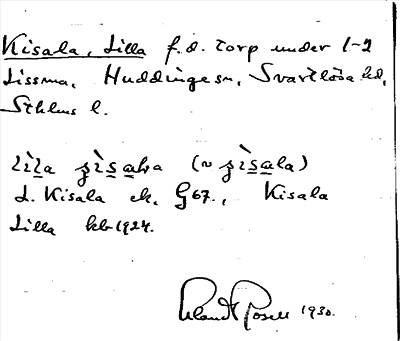 Kisala, Lilla f.d. torp under 1-2
Lissma, Huddinge sn, Svartlösa hd,
Sthlms l.
lìla ʒìsaka (~ ʒìsala)
L. Kisala ek. G67., Kisala
Lilla kb 1924.
Rosell 1930.